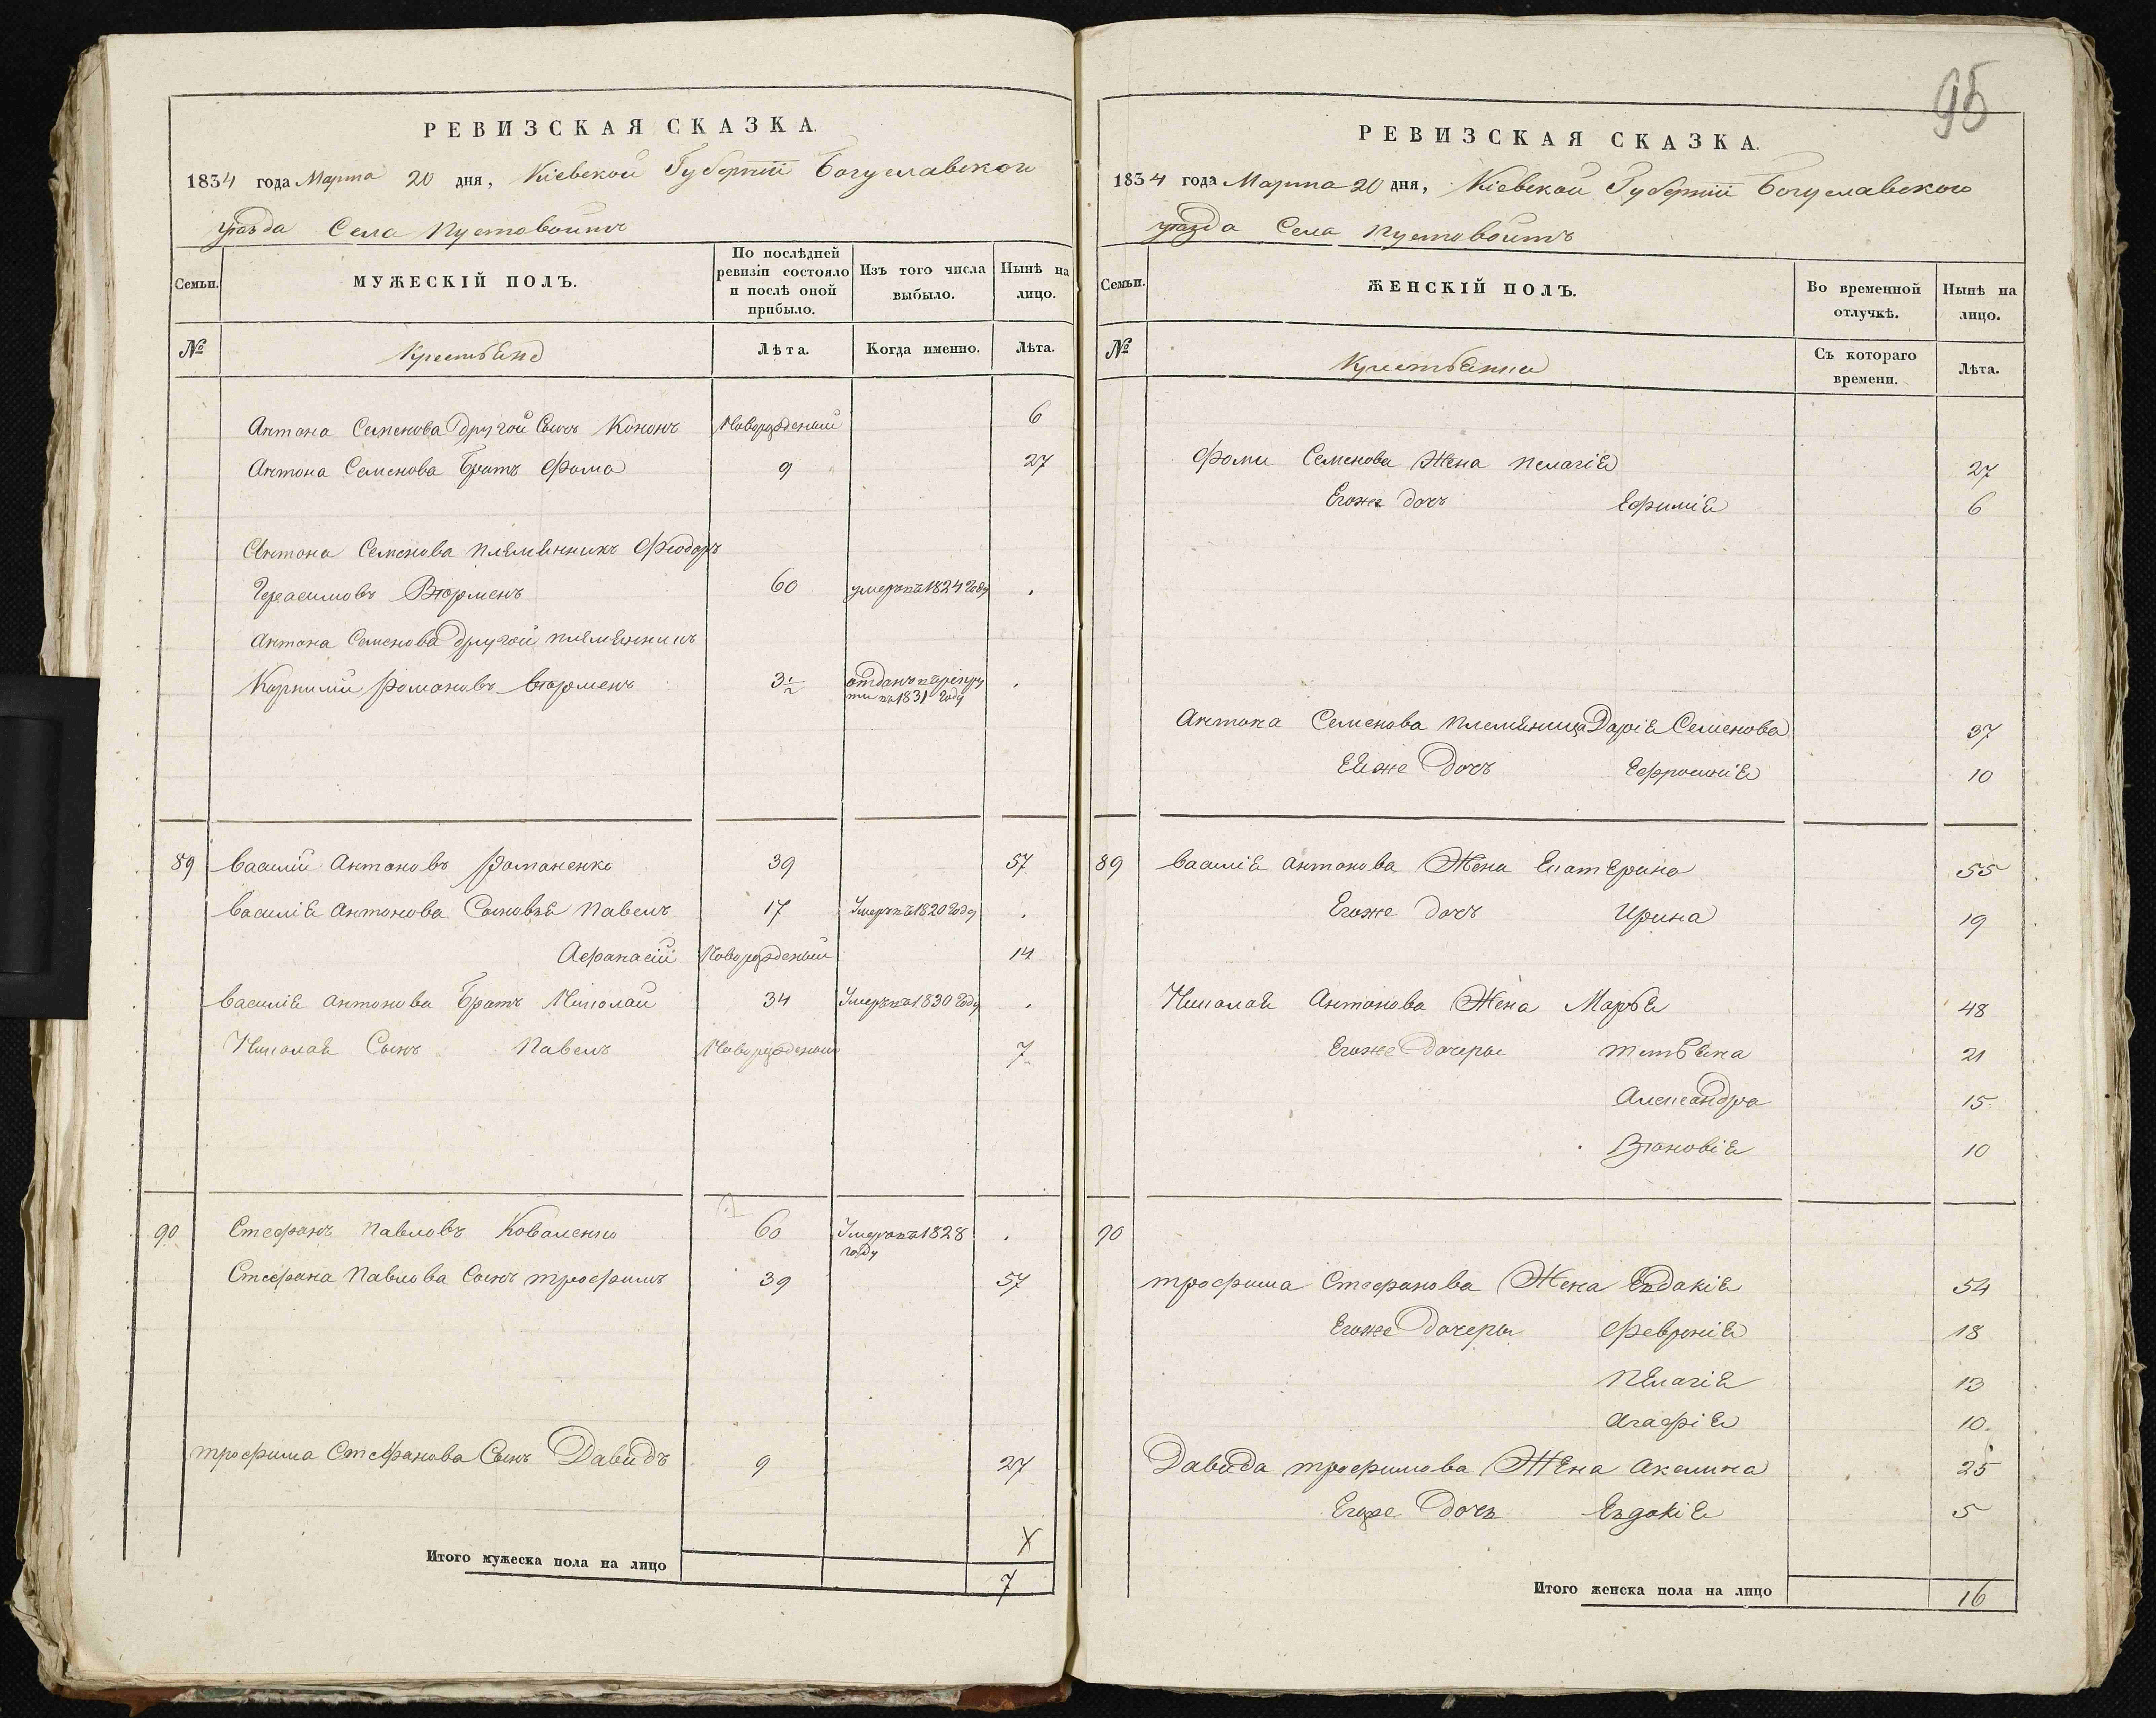 РЕВИЗСКАЯ СКАЗКА.
1834 года Марта 20 дня, Кіевской Губерніи Богуславского
уѣзда Села Пустовойтъ
Семьи.
МУЖЕСКІЙ ПОЛЪ.
По послѣдней ревизіи состояло и послѣ оной прибыло.
Изъ того числа выбыло.
Нынѣ на лицо.
№
Крестьяне
Лѣта.
Когда именно.
Лѣта.
Антона Семенова другой Сынъ Кононъ Новорожденый 6
Антона Семенова Братъ Фома 9 27
Антона Семенова племянникъ Феодоръ
Герасимовъ 60 умеръ въ 1824 году .
Антона Семенова другой племянникъ
Корнилій Романовъ 3½ отданъ въ рекруты въ 1831 году .
89 Василій Антоновъ Романенко 39 57
Василія Антонова Сыновья Павелъ 17 Умеръ въ 1820 году .
Афанасій Новорожденый 14
Василія Антонова Братъ Николай 34 Умеръ въ 1830 году .
Николая Сынъ Павелъ Новорожденый 7
90 Стефанъ Павловъ Коваленко 60 Умеръ въ 1828 году .
Стефана Павлова Сынъ Трофимъ 39 57
Трофима Стефанова Сынъ Давидъ 9 27
X
Итого мужеска пола на лицо 7
95
РЕВИЗСКАЯ СКАЗКА.
1834 года Марта 20 дня, Кіевской Губерніи Богуславского
уѣзда Села Пустовойтъ
Семьи.
ЖЕНСКІЙ ПОЛЪ.
Во временной отлучкѣ.
Нынѣ на лицо.
№
Съ котораго времени.
Лѣта.
Фомы Семенова Жена Пелагія 27
Егоже дочь Ефимія 6
Антона Семенова племяница Дарія Семенова 37
Ейже Дочь Ефросинія 10
89 Василія Антонова Жена Екатерина 55
Егоже дочь Ирина 19
Николая Антонова Жена Марья 48
Егоже Дочеры Тетьяна 21
Александра 15
10
90
Трофима Стефанова Жена Евдокія 54
Егоже Дочеры Февронія 18
Пелагія 13
Агафія 10
Давида Трофимова Жена Акелина 25
Егоже Дочь Евдокія 5
Итого женска пола на лицо 16